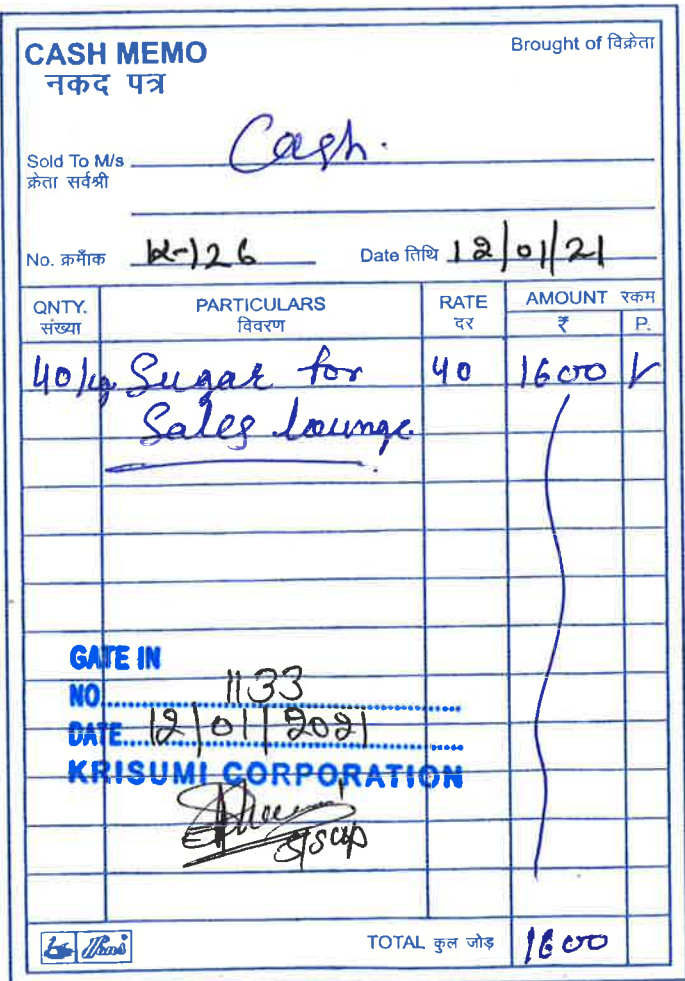 CASH MEMO
नकद पत्र
Brought of विक्रेता
Sold To M/s Cash.
क्रेता सर्वश्री
No. क्रमाँक K-126 Date तिथि 12/01/21
QNTY. PARTICULARS RATE AMOUNT रकम
संख्या विवरण दर ₹ P.
40/kg Sugar for 40 1600
Sales lounge.
GATE IN
NO. 1133
DATE 12/01/2021
KRISUMI CORPORATION
TOTAL कुल जोड़ 1600